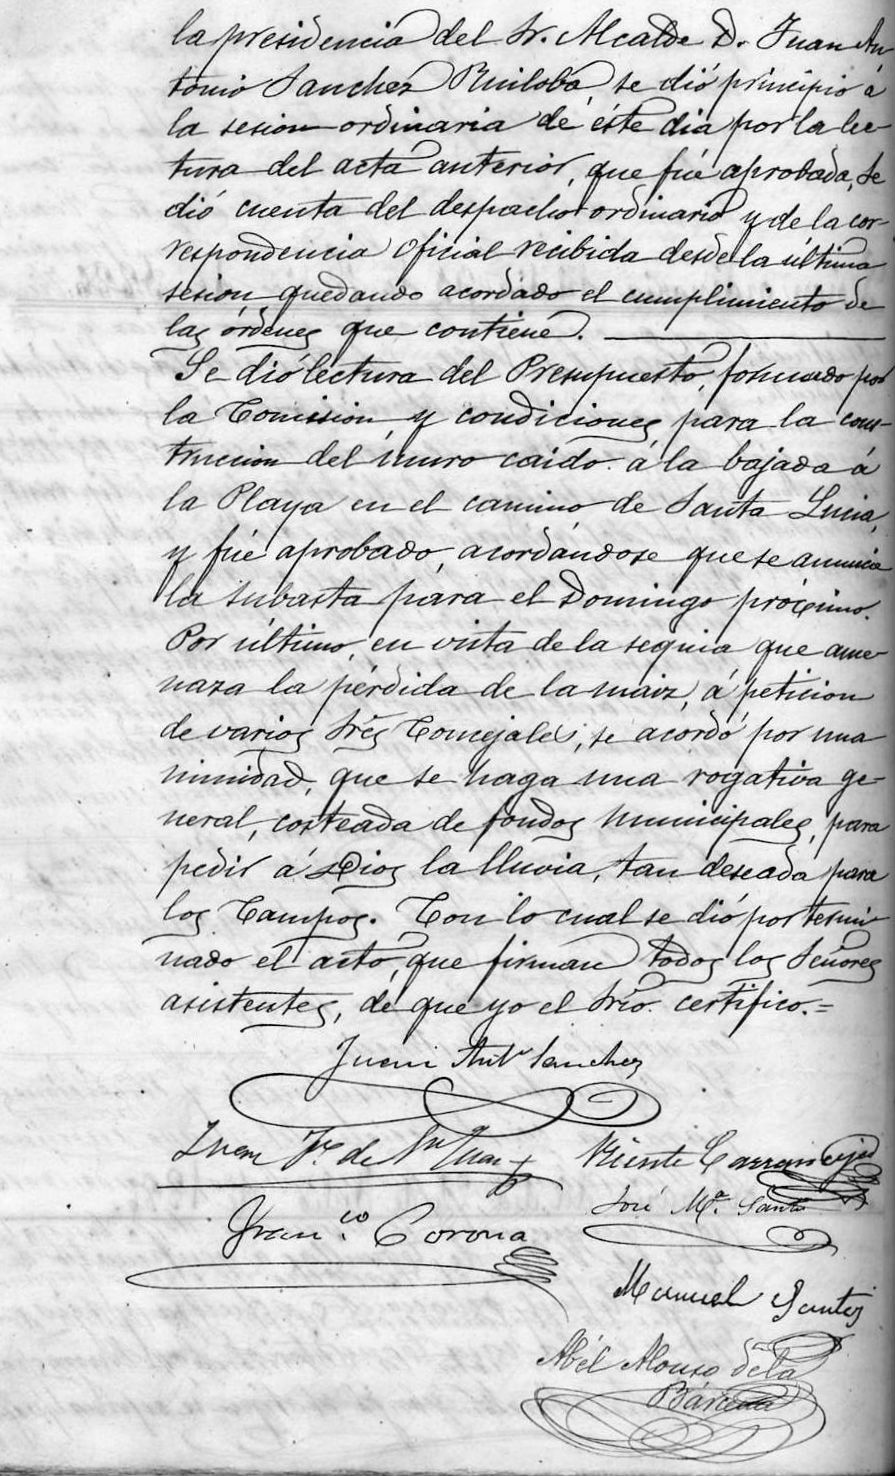 la presidencia del Sr. Alcalde D. Juan An
tonio Sanchez Ruiloba se dió principio á
la sesion ordinaria de éste dia por la lec-
tura del acta anterior, que fué aprobada, se
dió cuenta del despacho ordinario y de la cor-
respondencia oficial recibida desde la última
sesion, quedando acordado el cumplimiento de
las órdenes que contiene.
Se dió lectura del Presupuesto, formado por
la Comision y condiciones para la cons-
truccion del muro caido á la bajada á
la Playa en el camino de Santa Lucia,
y fué aprobado, acordándose que se anuncie
la subasta para el Domingo próximo.
Por último, en vista de la sequia que ame-
naza la pérdida de la maiz, á peticion
de varios Sres Concejales, se acordó por una
nimidad, que se haga una rogativa ge-
neral, costeada de fondos municipales, para
pedir á Dios la lluvia, tan deseada para
los Campos. Con lo cual se dió por termi-
nado el acto, que firman todos los Señores
asistentes, de que yo el Srio. certifico.=
Juan Ant. Sanchez
Juan F. de
Vicente
Franco. Corona
José Ma. Santos
Manuel Santos
Abél Alonso de la
Bárcena